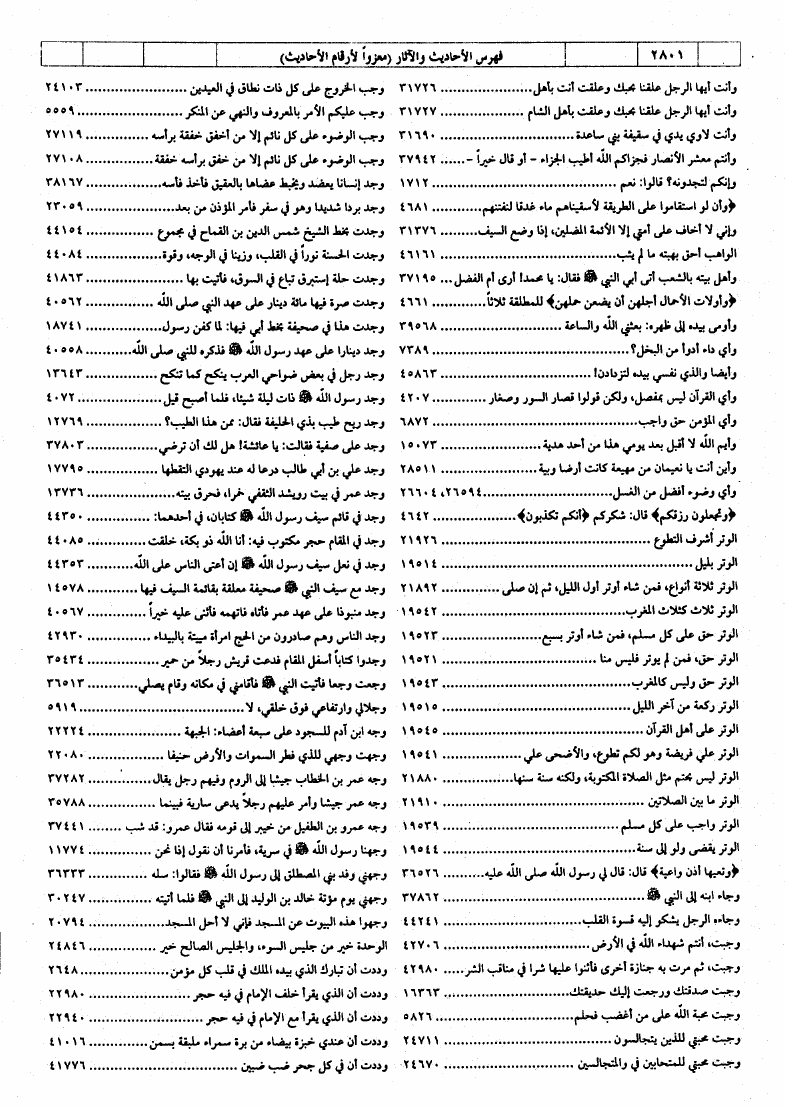 ٢٨٠١
فهرس الأحاديث والآثار (معزواً لأرقام الأحاديث)
وأنت أيها الرجل علقنا بحبك وعلقت أنت بأهل ..................... ٣١٧٢٦
وأنت أيها الرجل علقنا بحبك وعلقت بأهل الشام ..................... ٣١٧٢٧
وأنت لاوي يدي في سقيفة بني ساعدة ..................... ٣١٦٩٠
وأنتم معشر الأنصار فجزاكم الله أطيب الجزاء - أو قال خيراً - ..... ٣٧٩٤٢
وإنكم لتجدونه؟ قالوا: نعم ..................... ١٧١٢
﴿وأن لو استقاموا على الطريقة لأسقيناهم ماء غدقا لنفتنهم ............ ٤٦٨١
وإني لا أخاف على أمتي إلا الأئمة المضلين، إذا وضع السيف ............ ٣١٣٧٦
الواهب أحق بهبته ما لم يثب ..................... ٤٦١٦١
وأهل بيته بالشعب أتى أبي النبي ﷺ فقال: يا محمد! أرى أم الفضل ... ٣٧١٩٥
﴿وأولات الأحمال أجلهن أن يضعن حملهن﴾ للمطلقة ثلاثاً ............ ٤٦٦١
وأومى بيده إلى ظهره: بعثني الله والساعة ..................... ٣٩٥٦٨
وأي داء أدوأ من البخل؟ ..................... ٧٣٨٩
وأيضا والذي نفسي بيده لتزدادن! ..................... ٤٥٨٦٣
وأي القرآن ليس بمفصل، ولكن قولوا قصار السور وصغار ............ ٤٢٠٧
وأي المؤمن حق واجب ..................... ٦٨٧٢
وأيم الله لا أقبل بعد يومي هذا من أحد هدية ..................... ١٥٠٧٣
وأين أنت يا نعيمان من مهيعة كانت أرضا وبية ..................... ٢٨٥١١
وأي وضوء أفضل من الغسل ..................... ٢٦٥٩٤، ٢٦٦٠٤
﴿وتجعلون رزقكم﴾ قال: شكركم ﴿أنكم تكذبون﴾ ..................... ٤٦٤٢
الوتر أشرف التطوع ..................... ٢١٩٢٦
الوتر بليل ..................... ١٩٥١٤
الوتر ثلاثة أنواع، فمن شاء أوتر أول الليل، ثم إن صلى ............ ٢١٨٩٢
الوتر ثلاث كثلاث المغرب ..................... ١٩٥٤٢
الوتر حق على كل مسلم، فمن شاء أوتر بسبع ..................... ١٩٥٢٣
الوتر حق، فمن لم يوتر فليس منا ..................... ١٩٥٢١
الوتر حق وليس كالمغرب ..................... ١٩٥٤٣
الوتر ركعة من آخر الليل ..................... ١٩٥١٥
الوتر على أهل القرآن ..................... ١٩٥٤٥
الوتر علي فريضة وهو لكم تطوع، والأضحى علي ..................... ١٩٥٤١
الوتر ليس بحتم مثل الصلاة المكتوبة، ولكنه سنة سنها ............ ٢١٨٨٠
الوتر ما بين الصلاتين ..................... ٢١٩١٠
الوتر واجب على كل مسلم ..................... ١٩٥٣٩
الوتر يقضى ولو إلى سنة ..................... ١٩٥٤٤
﴿وتعيها أذن واعية﴾ قال: قال لي رسول الله صلى الله عليه ............ ٣٦٥٢٦
وجاء ابنه إلى النبي ﷺ ..................... ٣٧٨٦٢
وجاءه الرجل يشكو إليه قسوة القلب ..................... ٤٤٢٤١
وجبت، أنتم شهداء الله في الأرض ..................... ٤٢٧٠٦
وجبت، ثم مرت به جنازة أخرى فأثنوا عليها شرا في مناقب الشر ..... ٤٢٩٨٠
وجبت صدقتك ورجعت إليك حديقتك ..................... ١٦٣٦٣
وجبت محبة الله على من أغضب فحلم ..................... ٥٨٢٦
وجبت محبتي للذين يتجالسون ..................... ٢٤٧١١
وجبت محبتي للمتحابين في والمتجالسين ..................... ٢٤٦٧٠
وجب الخروج على كل ذات نطاق في العيدين ..................... ٢٤١٠٣
وجب عليكم الأمر بالمعروف والنهي عن المنكر ..................... ٥٥٥٩
وجب الوضوء على كل نائم إلا من أخفق خفقة برأسه ............ ٢٧١١٩
وجب الوضوء على كل نائم إلا من خفق برأسه خفقة ............ ٢٧١٠٨
وجد إنسانا يعضد ويخبط عضاها بالعقيق فأخذ فأسه ............ ٣٨١٦٧
وجد بردا شديدا وهو في سفر فأمر المؤذن من بعد ............ ٢٣٠٥٩
وجدت بخط الشيخ شمس الدين بن القماح في مجموع ............ ٤٤١٥٤
وجدت الحسنة نوراً في القلب، وزينا في الوجه، وقوة ............ ٤٤٠٨٤
وجدت حلة إستبرق تباع في السوق، فأتيت بها ............ ٤١٨٦٣
وجدت صرة فيها مائة دينار على عهد النبي صلى الله ............ ٤٠٥٦٢
وجدت هذا في صحيفة بخط أبي فيها: لما كفن رسول ............ ١٨٧٤١
وجد دينارا على عهد رسول الله ﷺ فذكره للنبي صلى الله ............ ٤٠٥٥٨
وجد رجل في بعض ضواحي العرب ينكح كما تنكح ............ ١٣٦٤٣
وجد رسول الله ﷺ ذات ليلة شيئا، فلما أصبح قيل ............ ٤٠٧٢
وجد ريح طيب بذي الحليفة فقال: ممن هذا الطيب؟ ............ ١٢٧٦٩
وجد على صفية فقالت: يا عائشة! هل لك أن ترضي ............ ٣٧٨٠٣
وجد علي بن أبي طالب درعا له عند يهودي التقطها ............ ١٧٧٩٥
وجد عمر في بيت رويشد الثقفي خمرا، فحرق بيته ............ ١٣٧٣٦
وجد في قائم سيف رسول الله ﷺ كتابان، في أحدهما: ............ ٤٤٣٥٠
وجد في المقام حجر مكتوب فيه: أنا الله ذو بكة، خلقت ............ ٤٤٠٨٥
وجد في نعل سيف رسول الله ﷺ إن أعتى الناس على الله ............ ٤٤٣٥٣
وجد مع سيف النبي ﷺ صحيفة معلقة بقائمة السيف فيها ............ ١٤٥٧٨
وجد منبوذا على عهد عمر فأتاه فاتهمه فأثنى عليه خيراً ............ ٤٠٥٦٧
وجد الناس وهم صادرون من الحج امرأة ميتة بالبيداء ............ ٤٢٩٣٠
وجدوا كتاباً أسفل المقام فدعت قريش رجلاً من حمير ............ ٣٥٤٣٤
وجعت وجعا فأتيت النبي ﷺ فأقامني في مكانه وقام يصلي ............ ٣٦٥١٣
وجلالي وارتفاعي فوق خلقي، لا ..................... ٥٩١٩
وجه ابن آدم للسجود على سبعة أعضاء: الجبهة ............ ٢٢٢٢٤
وجهت وجهي للذي فطر السموات والأرض حنيفا ............ ٢٢٠٨٠
وجه عمر بن الخطاب جيشا إلى الروم وفيهم رجل يقال ............ ٣٧٢٨٢
وجه عمر جيشا وأمر عليهم رجلاً يدعى سارية فبينما ............ ٣٥٧٨٨
وجه عمرو بن الطفيل من خيبر إلى قومه فقال عمرو: قد شب ........ ٣٧٤٤١
وجهنا رسول الله ﷺ في سرية، فأمرنا أن نقول إذا نحن ............ ١١٧٧٤
وجهني وفد بني المصطلق إلى رسول الله ﷺ فقالوا: سله ............ ٣٦٣٣٣
وجهني يوم مؤتة خالد بن الوليد إلى النبي ﷺ فلما أتيته ............ ٣٠٢٤٧
وجهوا هذه البيوت عن المسجد فإني لا أحل المسجد ............ ٢٠٧٩٤
الوحدة خير من جليس السوء، والجليس الصالح خير ............ ٢٤٨٤٦
وددت أن تبارك الذي بيده الملك في قلب كل مؤمن ............ ٢٦٤٨
وددت أن الذي يقرأ خلف الإمام في فيه حجر ............ ٢٢٩٨٠
وددت أن الذي يقرأ مع الإمام في فيه حجر ............ ٢٢٩٤٠
وددت أن عندي خبزة بيضاء من برة سمراء ملبقة بسمن ............ ٤١٠١٦
وددت أن في كل جحر ضب ضبين ..................... ٤١٧٧٦